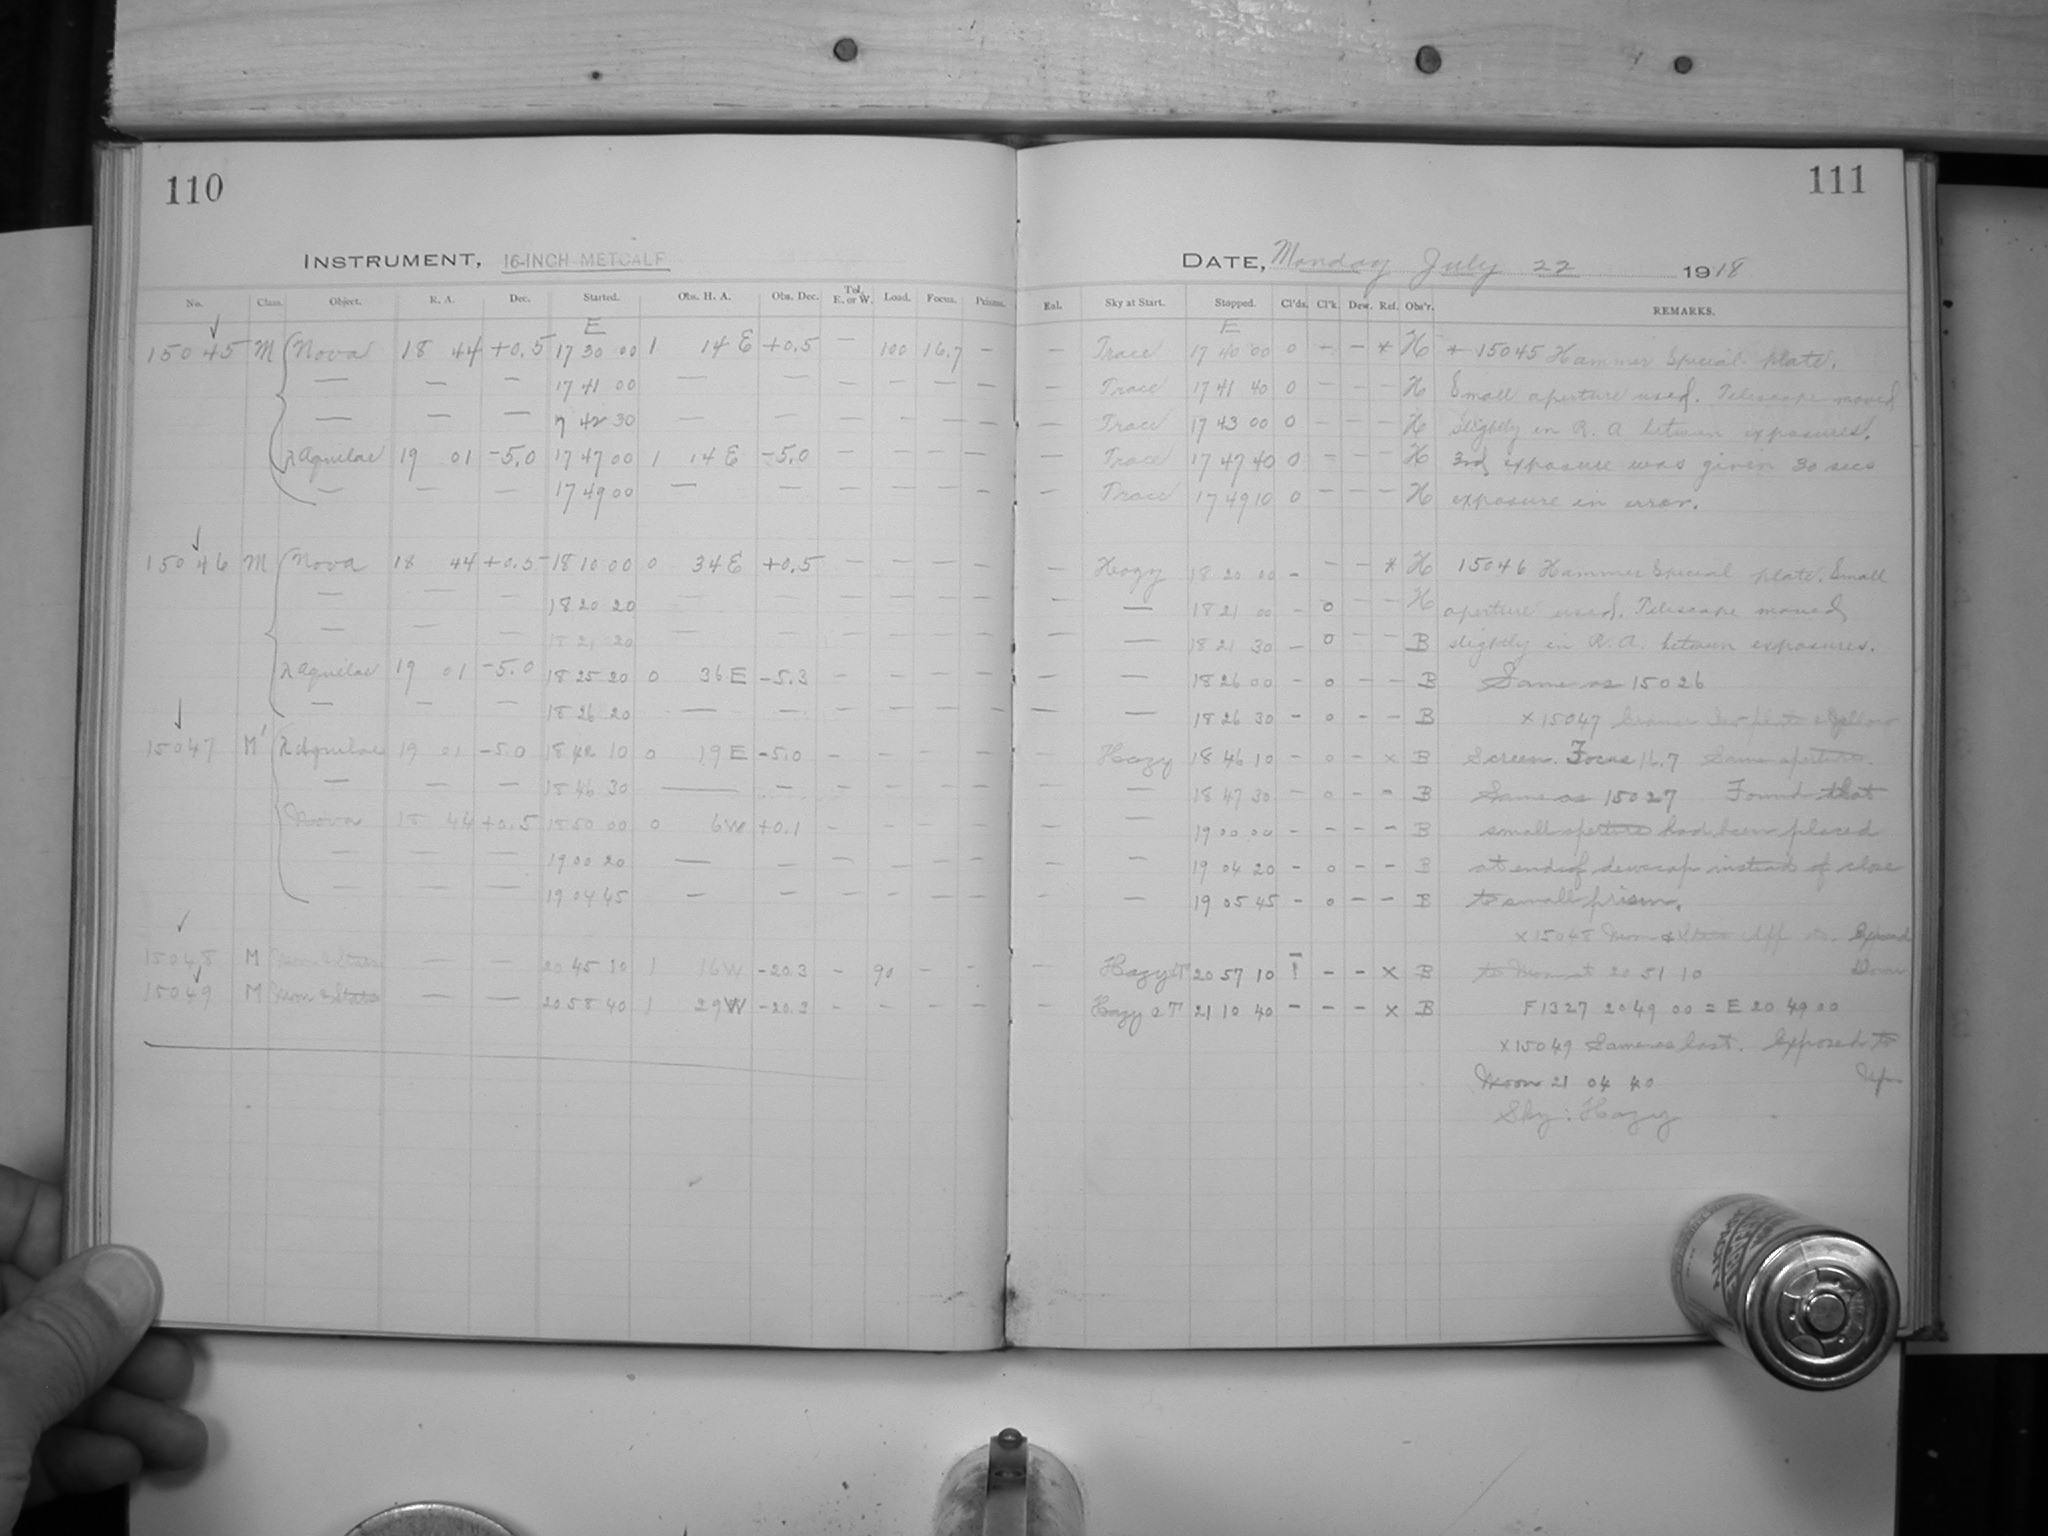 110
INSTRUMENT, 16-INCH METCALF
No. Class. Object. R. A. Dec. Started. Obs. H. A. Obs. Dec. Tel. E. or W. Load. Focus. Prisms.
E
15045 M Nova 18 44 +0.5 17 30 00 1 14 E +0.5 — 100 16.7 —
— — — 17 41 00 — — — — — —
— — — 17 42 30 — — — — — —
λ Aquilae 19 01 -5.0 17 47 00 1 14 E -5.0 — — — —
— — — 17 49 00 — — — — — —
15046 M Nova 18 44 +0.5 18 10 00 0 34 E +0.5 — — — —
— — — 18 20 20 — — — — — —
— — — 18 21 20 — — — — — —
λ Aquilae 19 01 -5.0 18 25 20 0 36 E -5.3 — — — —
— — — 18 26 20 — — — — — —
15047 M' λ Aquilae 19 01 -5.0 18 42 10 0 19 E -5.0 — — — —
— — — 18 46 30 — — — — — —
Nova 18 44 +0.5 18 50 00 0 6 W +0.1 — — — —
— — — 19 00 20 — — — — — —
— — — 19 04 45 — — — — — —
15048 M Moon & Stars — — 20 45 10 1 16 W -20.3 — 90 — —
15049 M Moon & Stars — — 20 58 40 1 29 W -20.3 — — — —
111
DATE, Monday July 22 1918
Eal. Sky at Start. Stopped. Cl'ds. Cl'k. Dew. Ref. Obs'r. REMARKS.
E
— Trace 17 40 00 0 — — * H * 15045 Hammer Special plate.
— Trace 17 41 40 0 — — — H Small aperture used. Telescope moved
— Trace 17 43 00 0 — — — H slightly in R. A between exposures.
— Trace 17 47 40 0 — — — H 3rd exposure was given 30 secs
— Trace 17 49 10 0 — — — H exposure in error.
— Hazy 18 20 00 — — — * H 15046 Hammer Special plate. Small
— — 18 21 00 — 0 — — H aperture used. Telescope moved
— — 18 21 30 — 0 — — B slightly in R. A. between exposures.
— — 18 26 00 — 0 — — B Same as 15026
— — 18 26 30 — 0 — — B x 15047 plate & Yellow
— Hazy 18 46 10 — 0 — x B Screen. Focus 16.7 Same aperture.
— — 18 47 30 — 0 — — B Same as 15027 Found that
— — 19 00 00 — — — — B small aperture had been placed
— — 19 04 20 — 0 — — B at end of dewcap instead of close
— — 19 05 45 — 0 — — B to small prism.
x 15048 Moon & Stars Exposed
— Hazy & T 20 57 10 1 — — x B to Moon at 20 51 10 Down
— Hazy & T 21 10 40 — — — x B F1327 20 49 00 = E 20 49 00
x 15049 Same as last. Exposed to
Moon 21 04 40 Up
Sky: Hazy